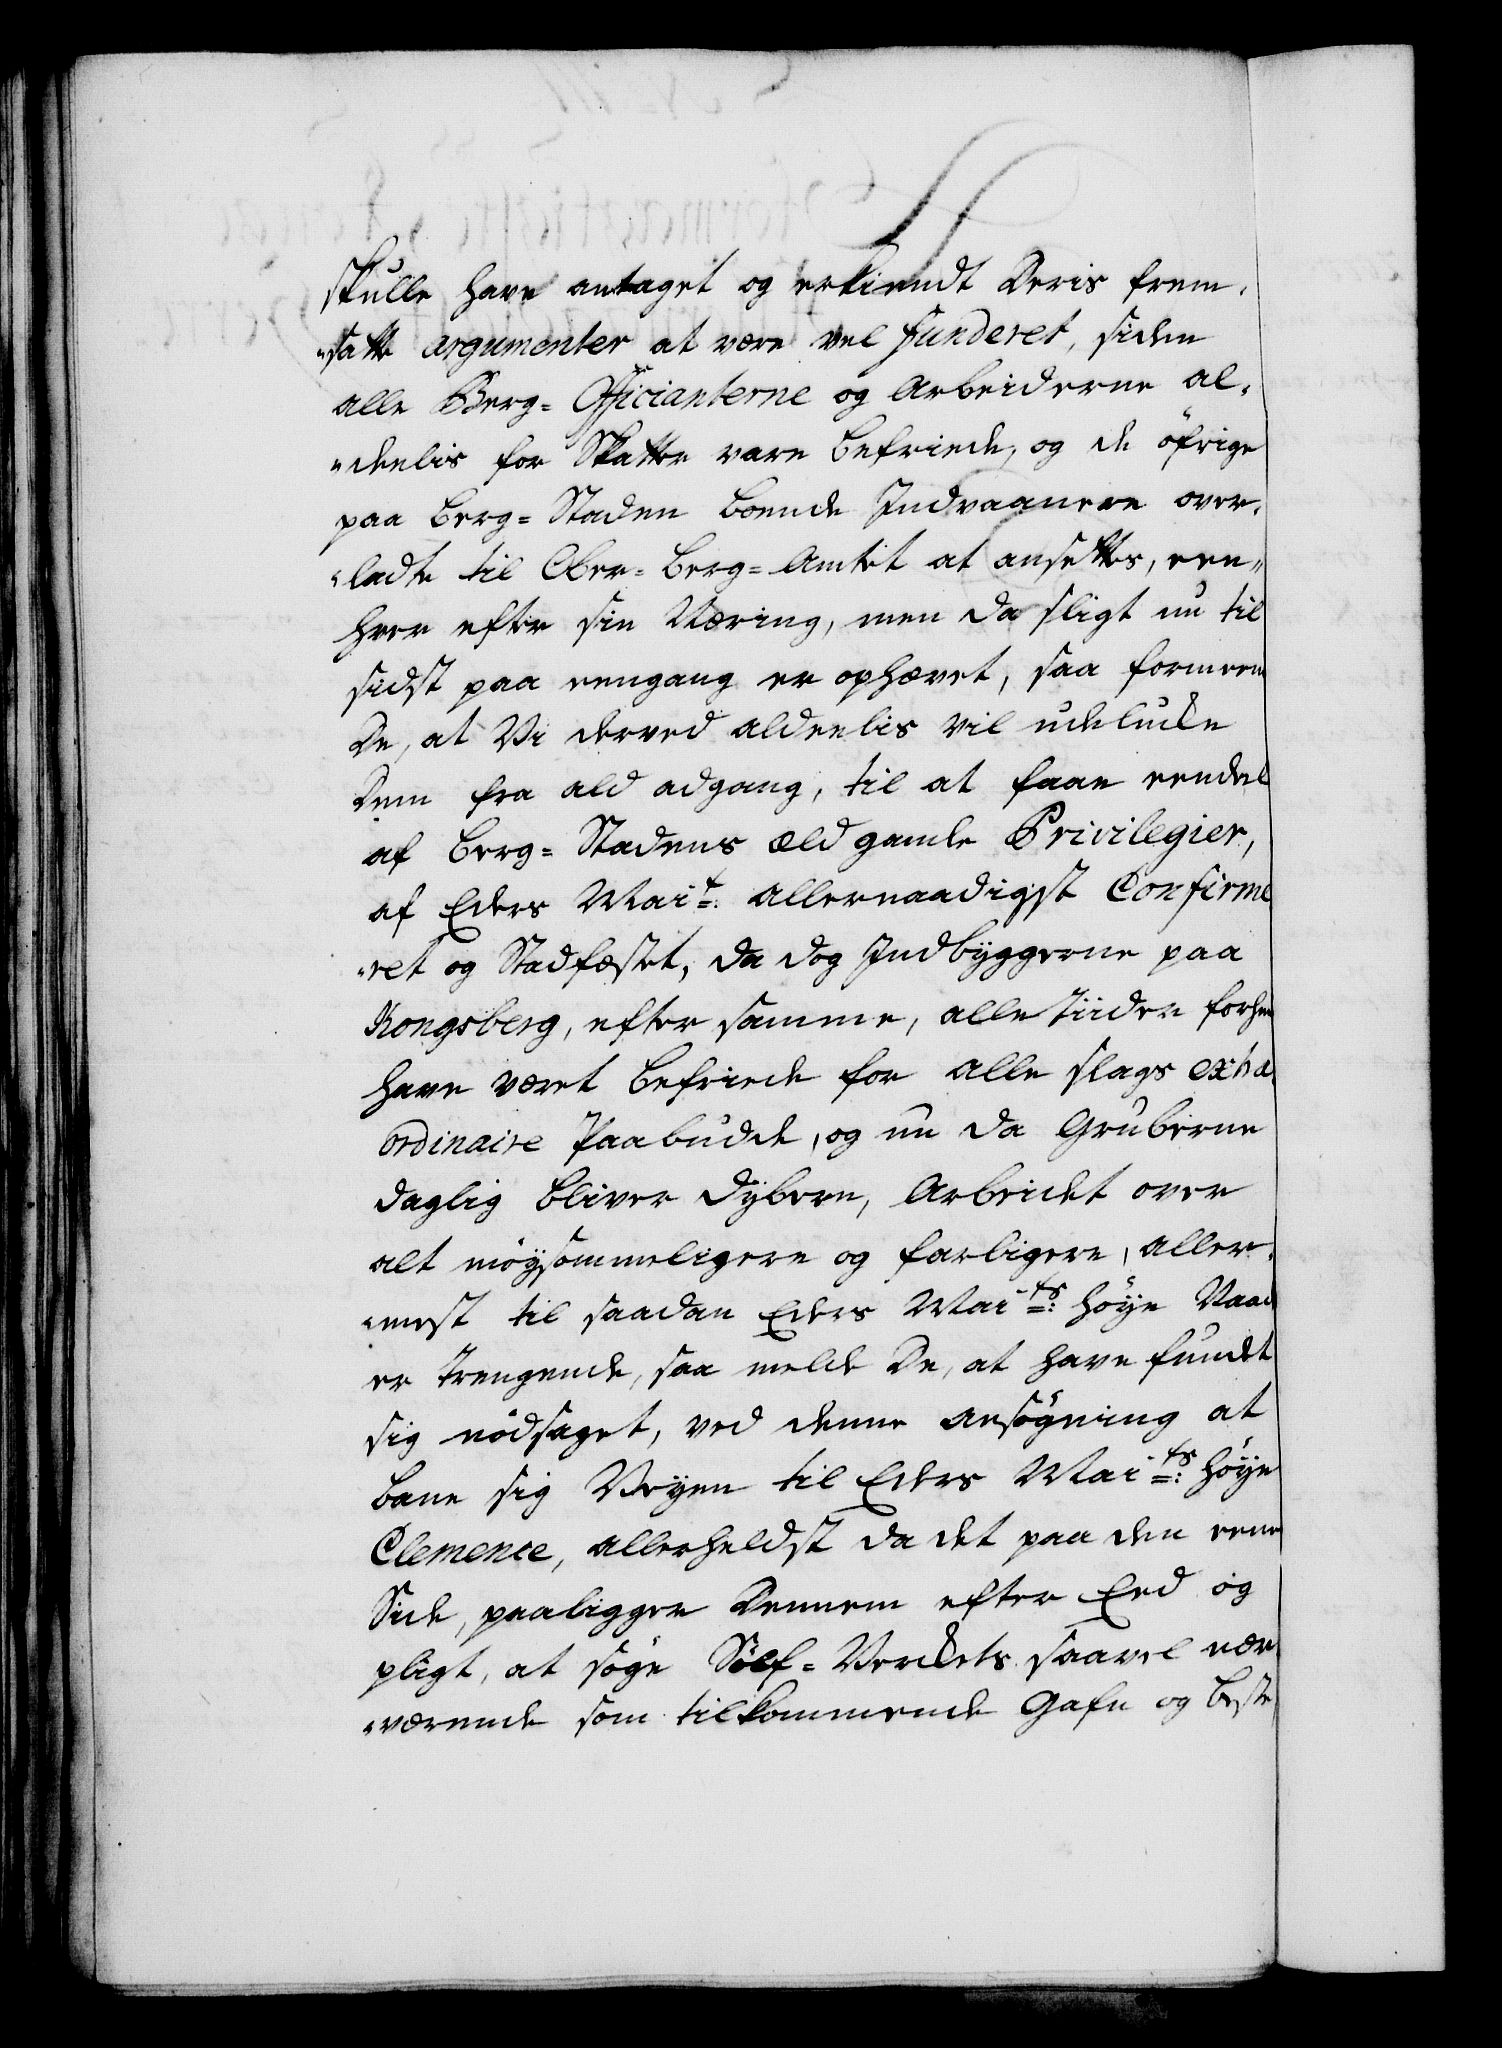 skulle have antaget og erkiendt Deris frem-
"satte argumenter at være vel funderet, siden
alle Berg= Officianterne og Arbeiderne al-
"deelis for Skatter vare befriede, og de öfrige
paa Berg= Staden boende Indvaanere over-
"ladte til Ober= Berg= Amtet at ansettes, een"
hver efter sin Næring, men da sligt nu til
sidst paa eengang er ophævet, saa formeene
De, at Vi derved aldeelis vil udelucke
Dem fra ald adgang, til at faae eendeel
af Berg= Stadens ældgamle Privilegier,
af Eders Mait: allernaadigst Confirme
"ret og Stadfæstet, da dog Indbyggerne paa
Kongsberg, efter samme, alle Tiider forhen
have været befriede for alle slags extra-
ordinaire Paabudde, og nu da Gruberne
daglig bliver dybere, Arbeidet over
alt möysommeligere og farligere, aller-
"mest til saadan Eders Maits: höye Naade
er trengende, saa melde De, at have fundet
sig nödsaget, ved denne ansögning at
bane sig Veyen til Eders Maits: höye
Clemence, allerheldst da det paa den eene
Side, paaligger Dennem efter Eed og
pligt, at söge Sölf= Verckets saavel nær-
"værende som tilkommende Gafn og beste